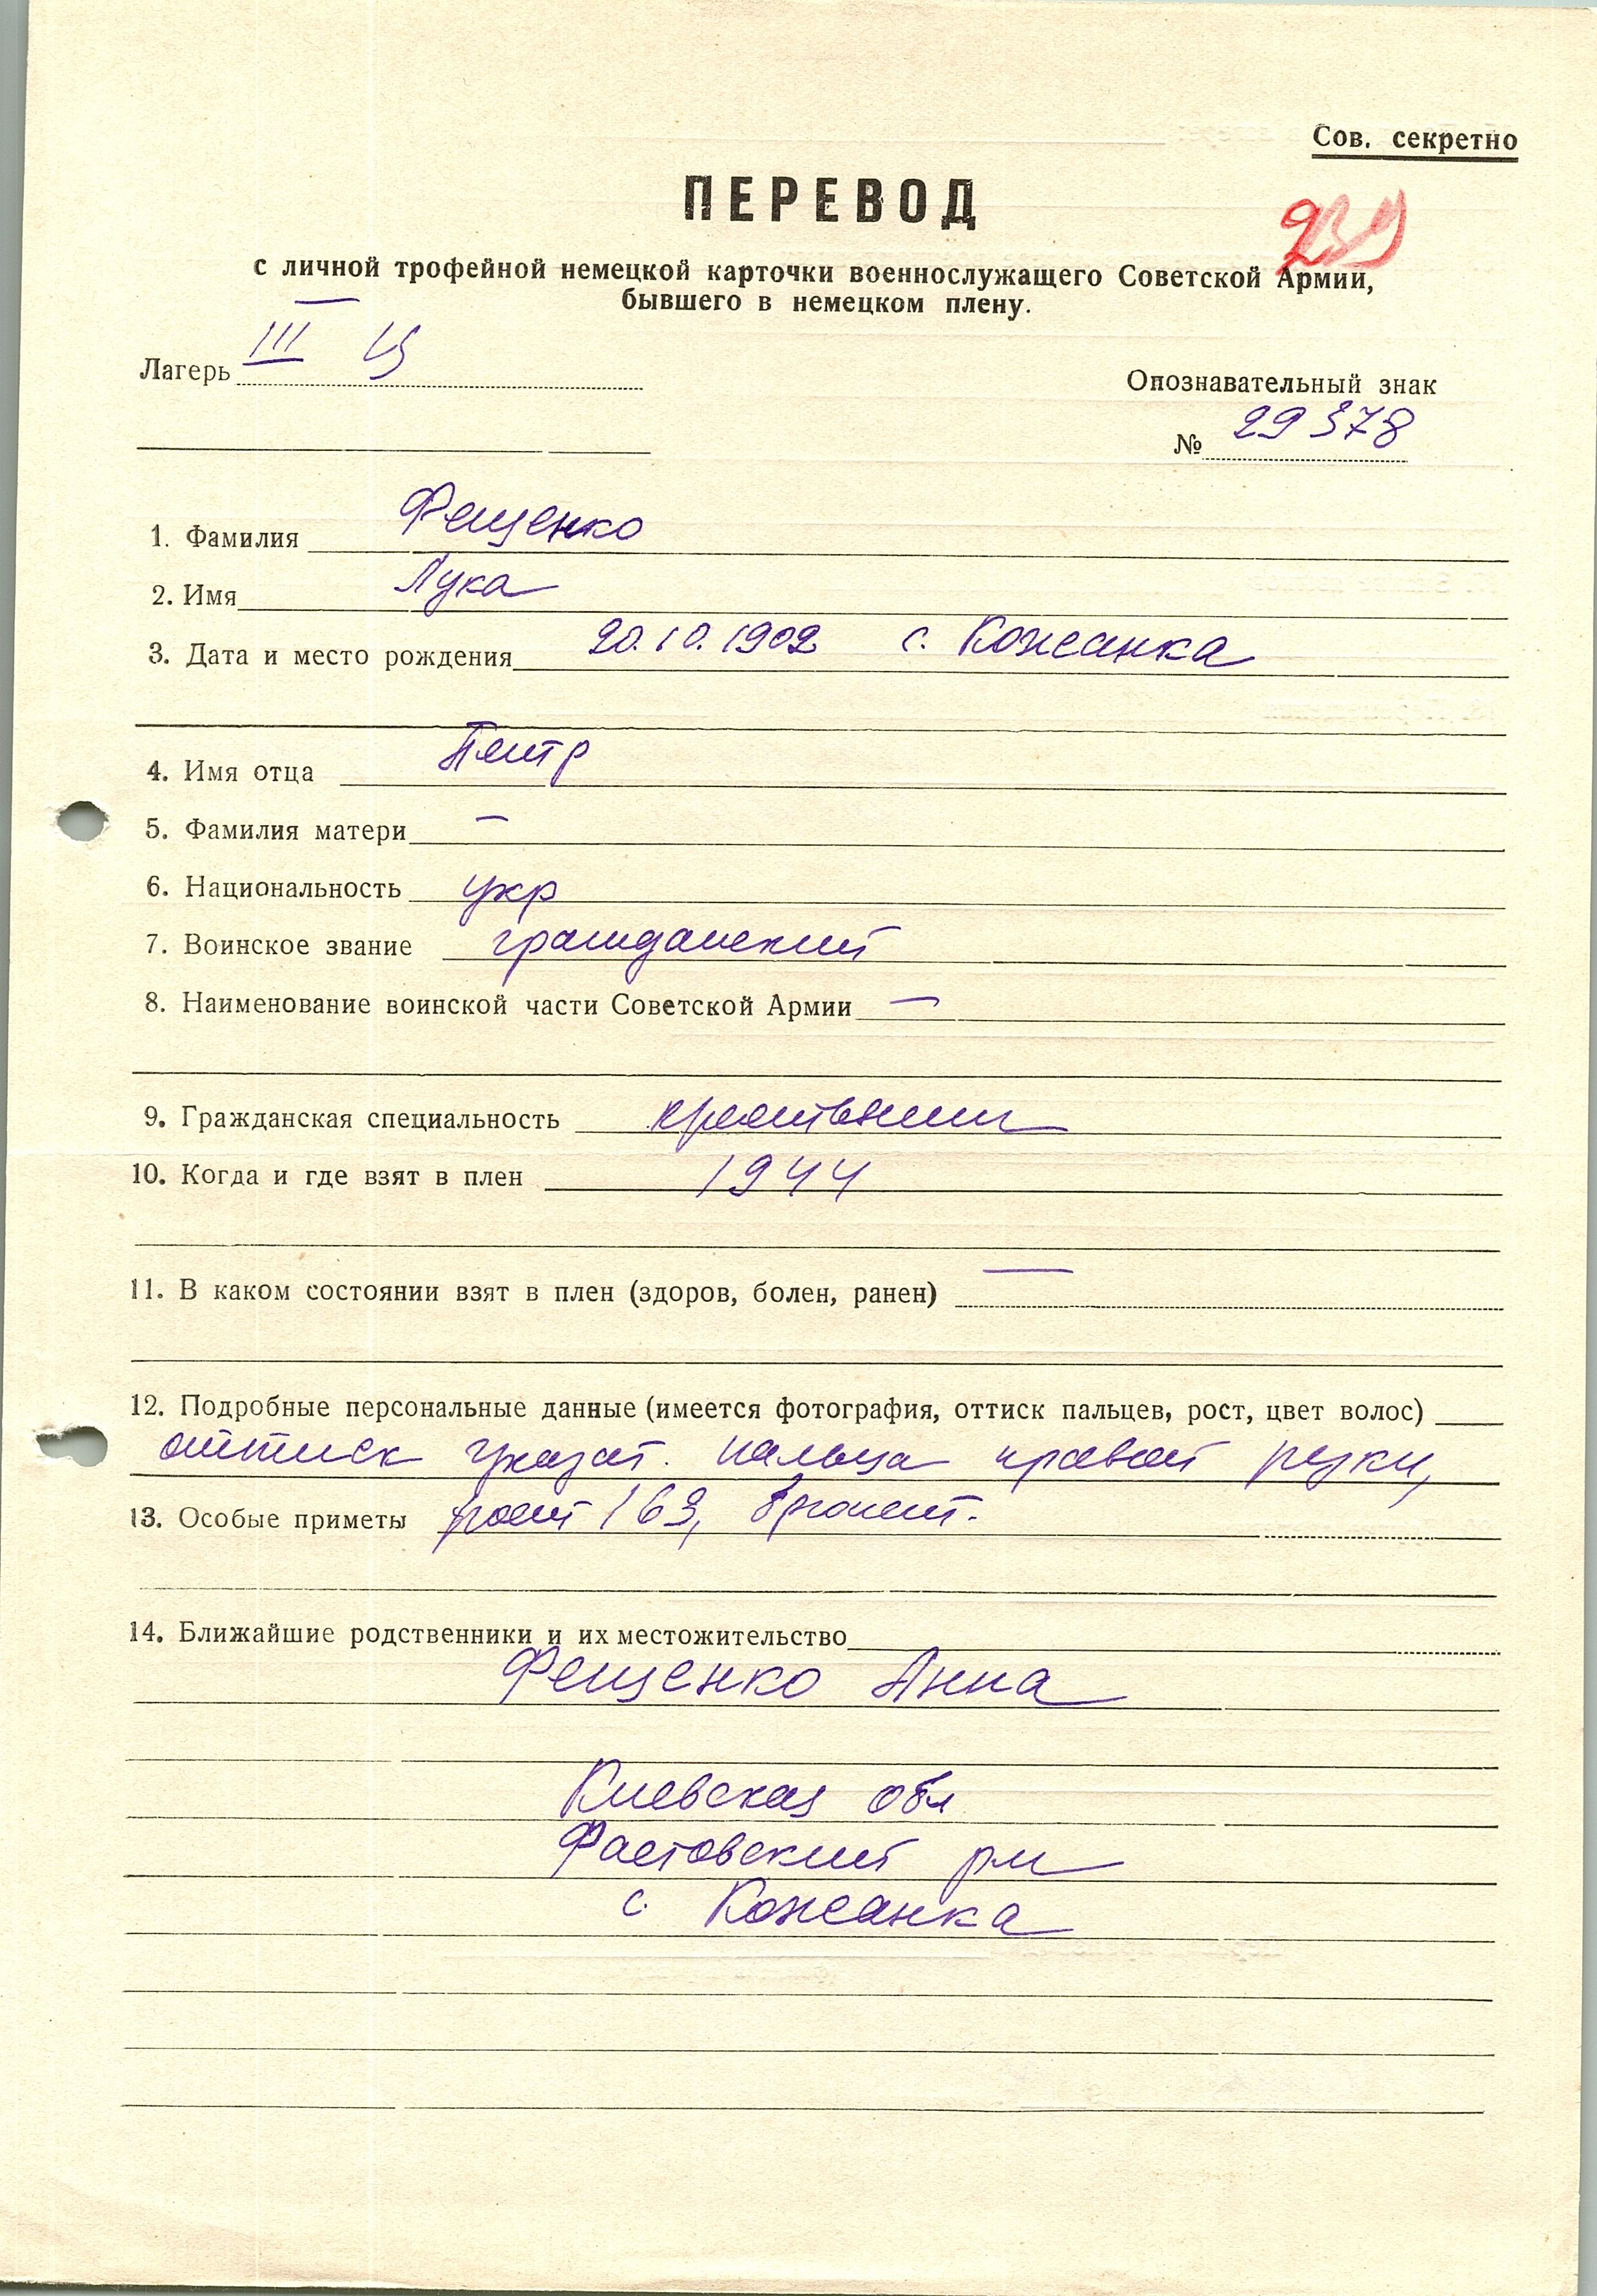 Сов. секретно
ПЕРЕВОД
с личной трофейной немецкой карточки военнослужащего Советской Армии,
бывшего в немецком плену.
Лагерь III Ц
Опознавательный знак
№ 29378
1. Фамилия Фещенко
2. Имя Лука
3. Дата и место рождения 20.10.1902 с. Кожанка
4. Имя отца Петр
5. Фамилия матери —
6. Национальность укр
7. Воинское звание гражданский
8. Наименование воинской части Советской Армии —
9. Гражданская специальность крестьянин
10. Когда и где взят в плен 1944
11. В каком состоянии взят в плен (здоров, болен, ранен) —
12. Подробные персональные данные (имеется фотография, оттиск пальцев, рост, цвет волос)
оттиск указат. пальца правой руки,
13. Особые приметы рост 163, брюнет.
14. Ближайшие родственники и их местожительство
Фещенко Анна
Киевская обл
Фастовский рн
с. Кожанка